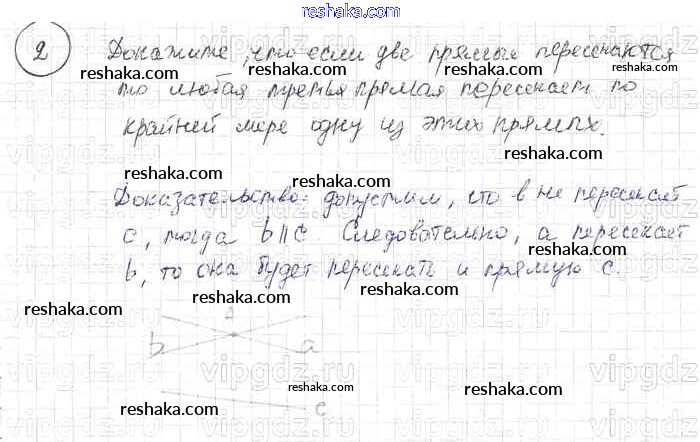 reshaka.com
2 Докажите, что если две прямые пересекаются
reshaka.com reshaka.com reshaka.com
то любая третья прямая пересекает по
крайней мере одну из этих прямых.
reshaka.com reshaka.com reshaka.com
Доказательство: допустим, что в не пересекает
c, тогда b || c. Следовательно, а пересекает
reshaka.com reshaka.com reshaka.com
b, то она будет пересекать и прямую c.
reshaka.com reshaka.com reshaka.com
A
b a
reshaka.com reshaka.com reshaka.com
c
reshaka.com
vipgdz